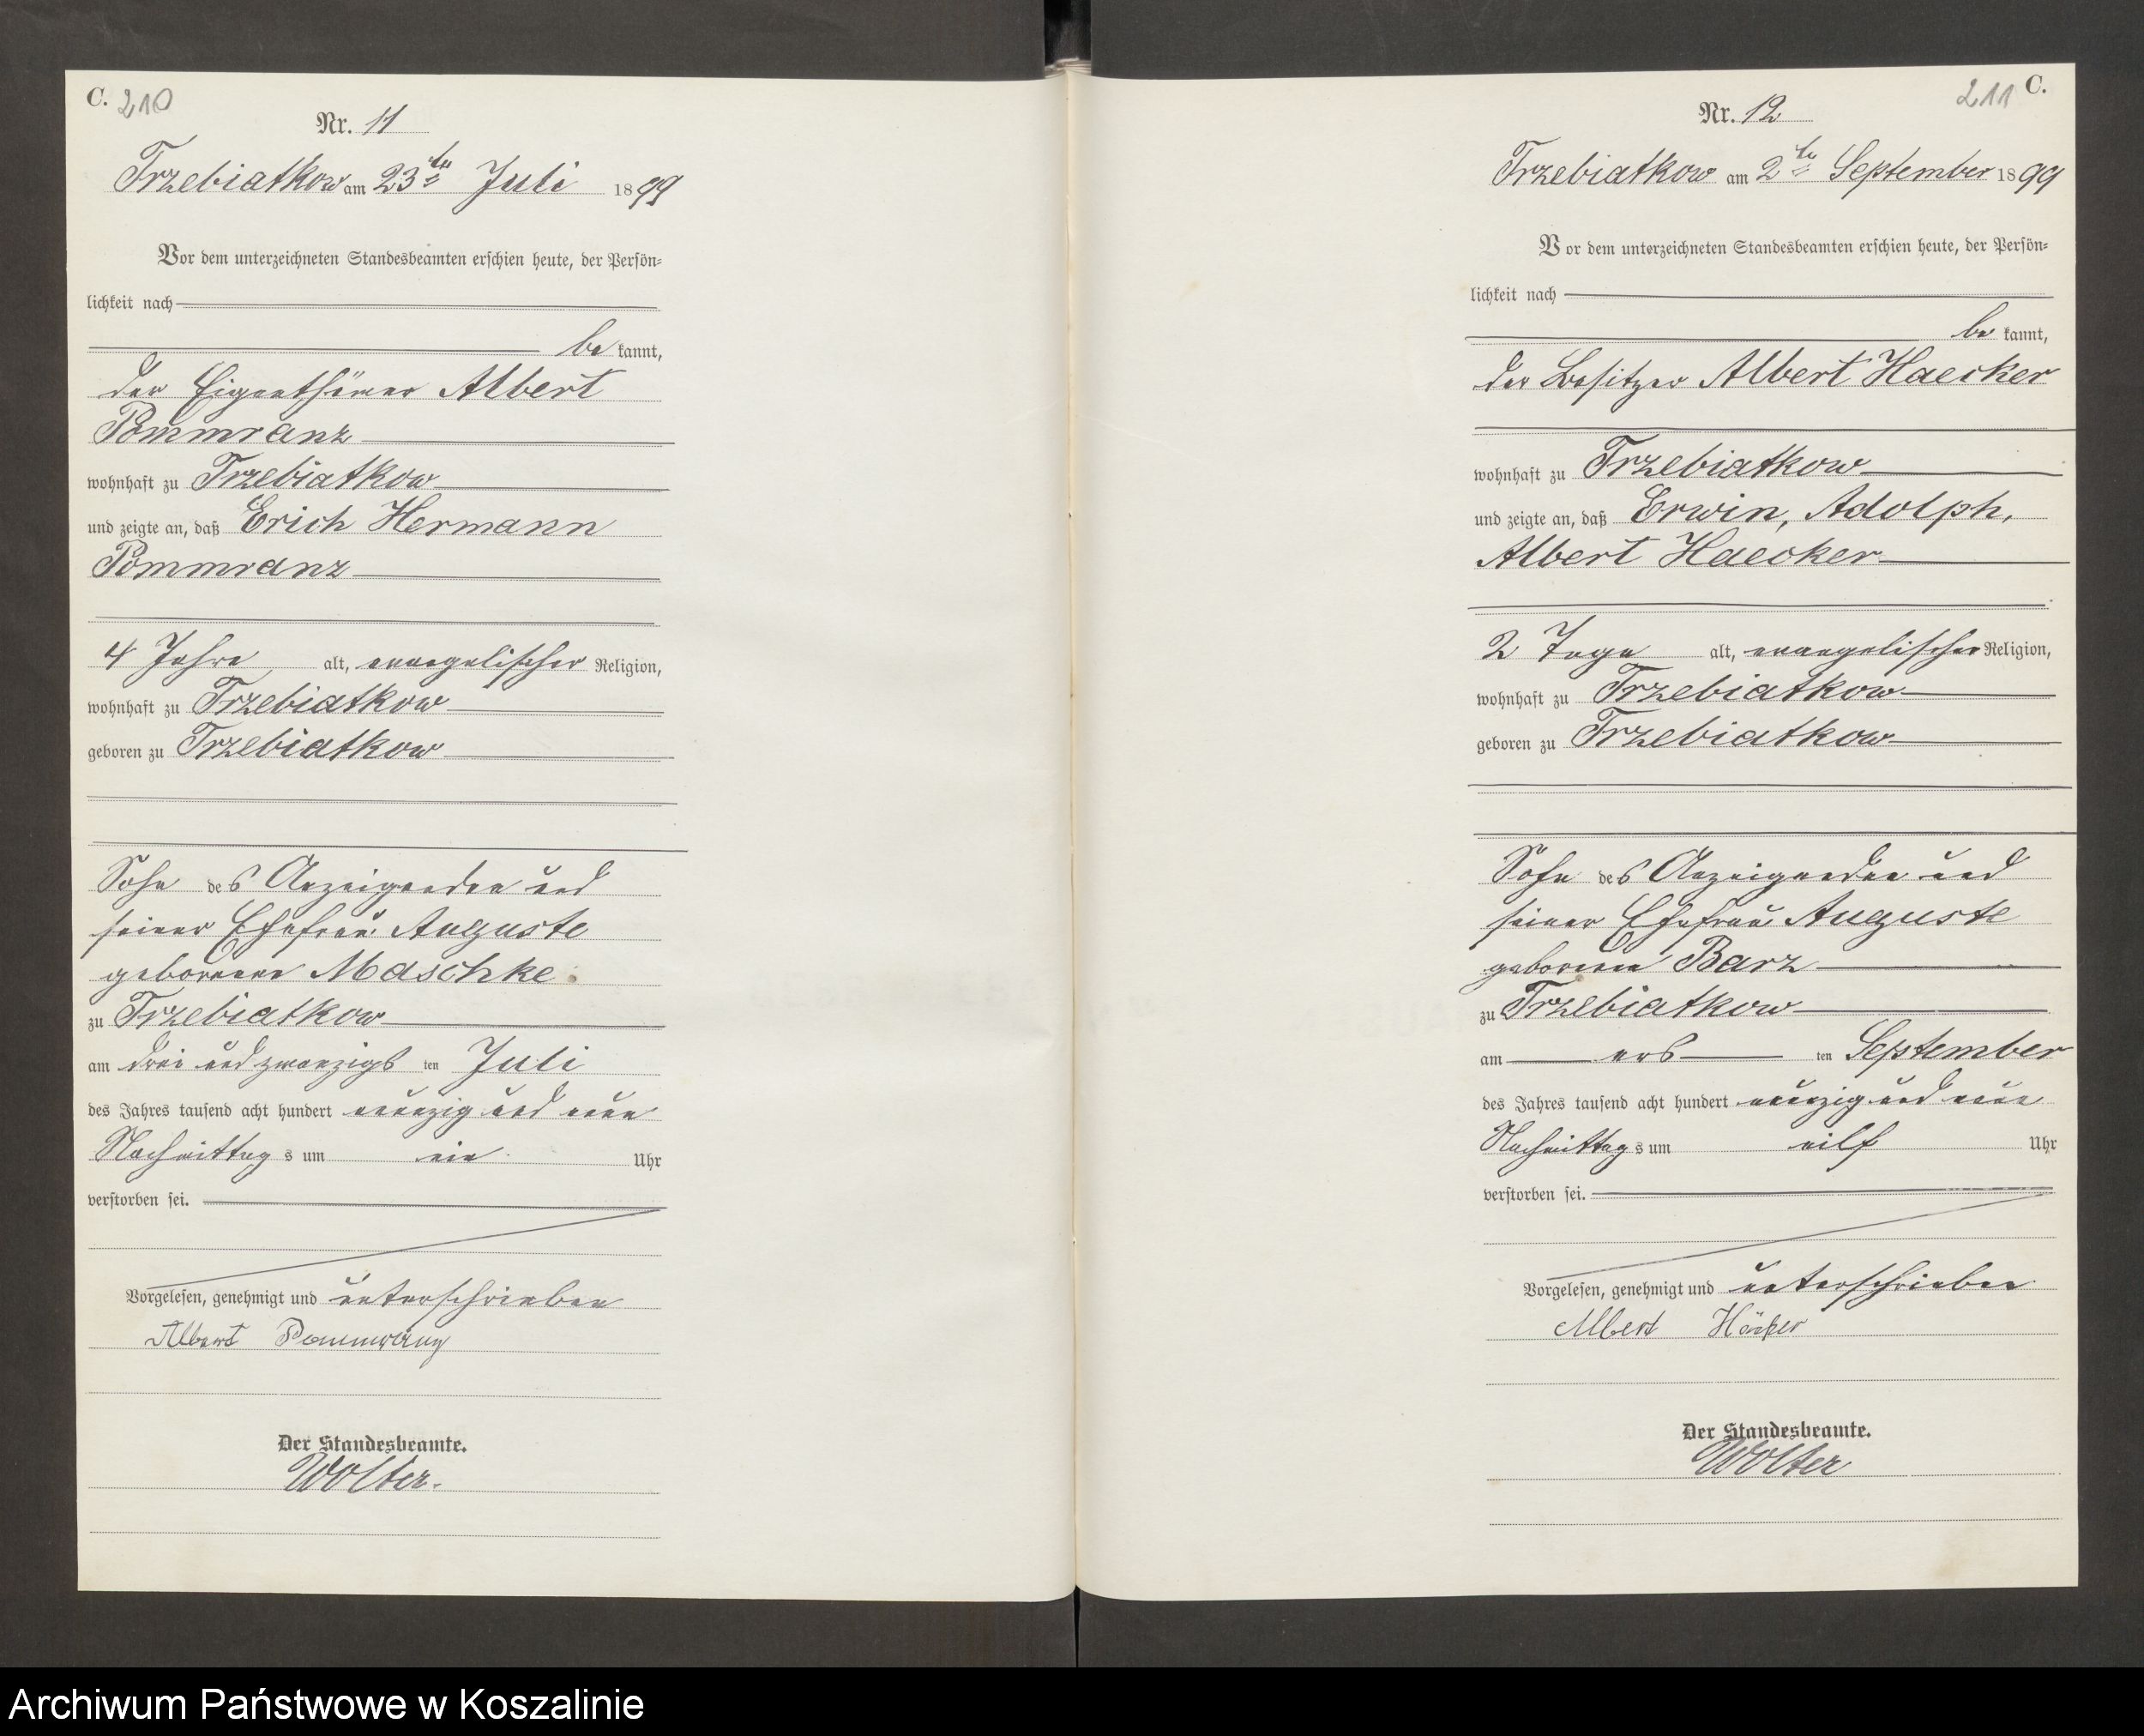 C. 210
Nr. 11
Trzebiatkow am 23ten Juli 1899
Vor dem unterzeichneten Standesbeamten erschien heute, der Persön-
lichkeit nach
be kannt,
der Eigenthümer Albert
Pommranz
wohnhaft zu Trzebiatkow
und zeigte an, daß Erich Hermann
Pommranz
4 Jahre alt, evangelischer Religion,
wohnhaft zu Trzebiatkow
geboren zu Trzebiatkow
Sohn des Anzeigenden und
seiner Ehefrau Auguste
geborenen Maschke
zu Trzebiatkow
am drei und zwanzigsten Juli
des Jahres tausend acht hundert neunzig und neun
Nachmittags um ein Uhr
verstorben sei.
Vorgelesen, genehmigt und unterschrieben
Albert Pommranz
Der Standesbeamte.
Wolter.
211 C.
Nr. 12
Trzebiatkow am 2ten September 1899
Vor dem unterzeichneten Standesbeamten erschien heute, der Persön-
lichkeit nach
be kannt,
der Besitzer Albert Haecker
wohnhaft zu Trzebiatkow
und zeigte an, daß Erwin, Adolph,
Albert Haecker
2 Tage alt, evangelischer Religion,
wohnhaft zu Trzebiatkow
geboren zu Trzebiatkow
Sohn des Anzeigenden und
seiner Ehefrau Auguste
geborenen Barz
zu Trzebiatkow
am ersten September
des Jahres tausend acht hundert neunzig und neun
Nachmittags um eilf Uhr
verstorben sei.
Vorgelesen, genehmigt und unterschrieben
Albert Häcker
Der Standesbeamte.
Wolter
Archiwum Państwowe w Koszalinie